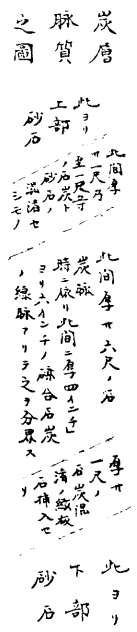 炭層
脉質
之圖
此ヨリ
上部
砂石
此間厚
サ一尺乃
至一尺半
ノ石炭ト
砂石ノ
混淆セ
シモノ
此間厚サ六尺ノ石
炭脉
時ニ依リ此間ニ厚四インチ
ヨリ六インチノ磅合石炭
ノ線脉アリテ之ヲ分界ス
厚サ
一尺ノ
石炭混
淆ノ紋板
石挿入セ
リ
此ヨリ
下部
砂石